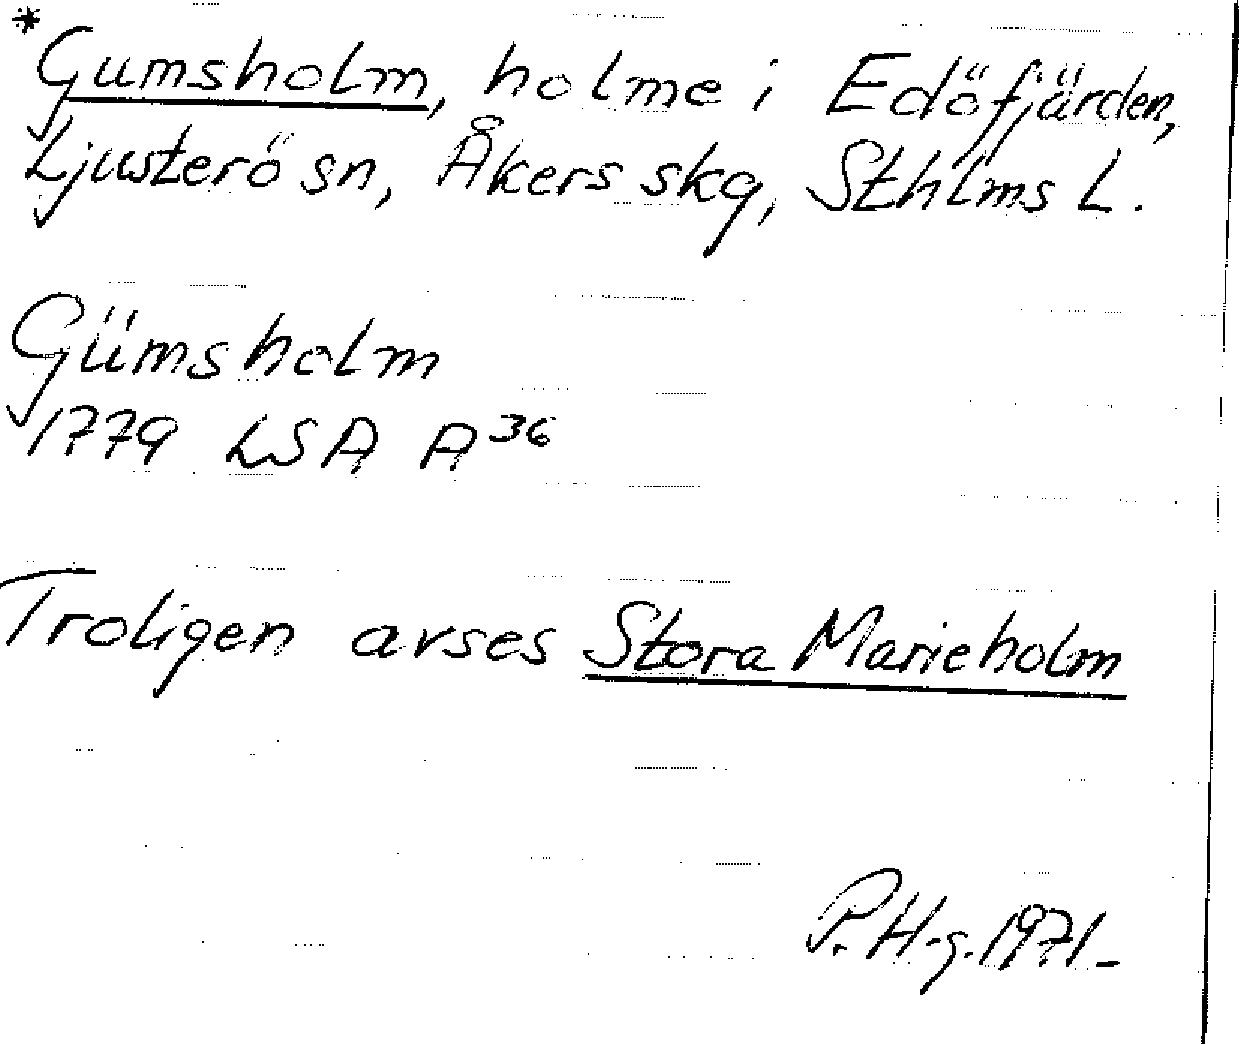 *
Gumsholm, holme i Edöfjärden,
Ljusterö sn, Åkers skg, Sthlms L.
Gümsholm
1779 LSA A36
Troligen avses Stora Marieholm
P.H-g. 1971-